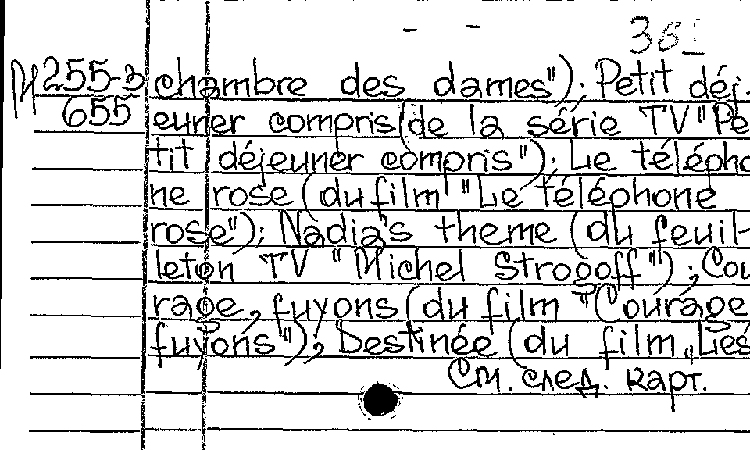 361
М 255-3 chambre des dames"); Petit déj-
655 euner compris (de la série TV "Pe
tit déjeuner compris"); Le télépho
ne rose (du film "Le téléphone
rose"); Nadia's theme (du feuil-
leton TV "Michel Strogoff"); Cou
rage, fuyons (du film "Courage
fuyons"); Destinée (du film „Les
См. след. карт.